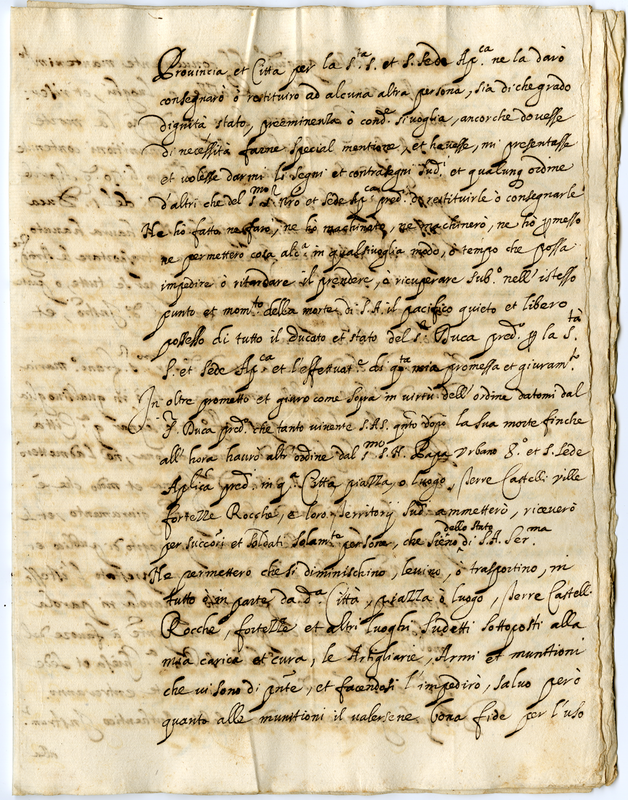 Provincia et Città per la S.ta S. et S. Sede Ap.ca ne la darò
consegnarò ò restituirò ad alcuna altra persona, sia di che grado
dignità stato, preeminenza ò cond.e si voglia, ancorche dovesse
di necessità farne special mentione, et havesse, mi presentasse
et volesse darmi li segni et contrasegni sud.i et qualunq ordine
d'altri che del S.mo S. Nrõ et Sede Ap.ca pred.a di restituirle ò consegnarle
Ne hò fatto ne farò, ne hò machinato, ne machinerò, ne hò ꝑmesso
ne permetterò cosa alc.a in qualsivoglia modo, ò tempo che possa
impedire ò ritardare il prendere, ò ricuperare sub.o nell'istesso
punto et mom.to della morte di S.A. il pacifico quieto et libero
possesso di tutto il Ducato et stato del S.r Duca pred.o ꝑ la S.tà
S. et Sede Ap.ca et l'effettuat.e di q.ta mia promessa et giuram.to
In oltre prometto et giuro come sopra in virtù dell'ordine datomi dal
S. Duca pred.o che tanto vivente S.A.S. qñto dopo la sua morte finche
all'hora havrò altr'ordine dal S.mo S. N. Papa Urbano 8.o et S. Sede
Aplica pred.a in q.a Città piazza, o luogo, Terre Castelli ville
fortezze Rocche, e loro Territorij sud.i ammetterò, riceverò
per succorsi et soldati solam.te persone, che sieno dello stato di S.A. Ser.ma
Ne permetterò che si diminischino, levino, ò trasportino, in
tutto ò in parte da d.a Città, piazza ò luogo, Terre Castelli
Rocche, fortezze et altri luoghi sudetti sottoposti alla
mia carica et cura, le Artigliarie, Armi et munitioni
che vi sono di pñte, et facendosi l'impedirò, salvo però
quanto alle munitioni il valersene bona fide per l'uso